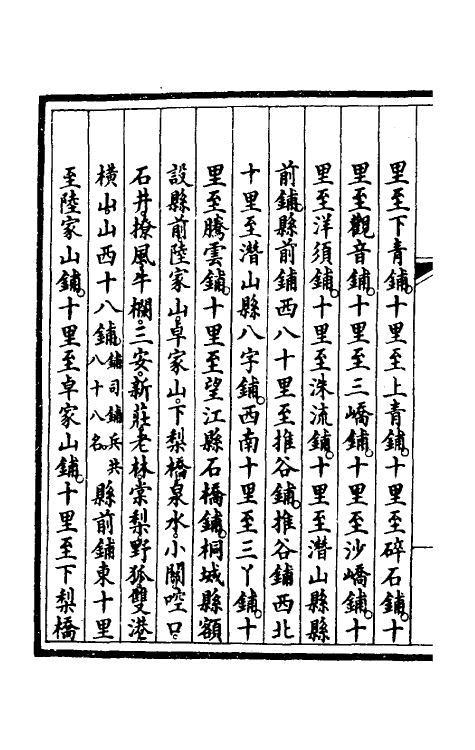 里至下青鋪。十里至上青鋪。十里至碎石鋪。十
里至觀音鋪。十里至三嶠鋪。十里至沙嶠鋪。十
里至洋須鋪。十里至洙流鋪。十里至潛山縣縣
前鋪。縣前鋪西八十里至推谷鋪。推谷鋪西北
十里至潛山縣八字鋪。西南十里至三丫鋪。十
里至騰雲鋪。十里至望江縣石橋鋪。桐城縣額
設縣前陸家山。卓家山。下梨橋。泉水。小關。啌口。
石井。撩風。牛欄。三安。新莊。老林。棠梨。野狐。雙港。
橫山。山西十八鋪。鋪司鋪兵共八十八名。縣前鋪東十里
至陸家山鋪。十里至卓家山鋪。十里至下梨橋